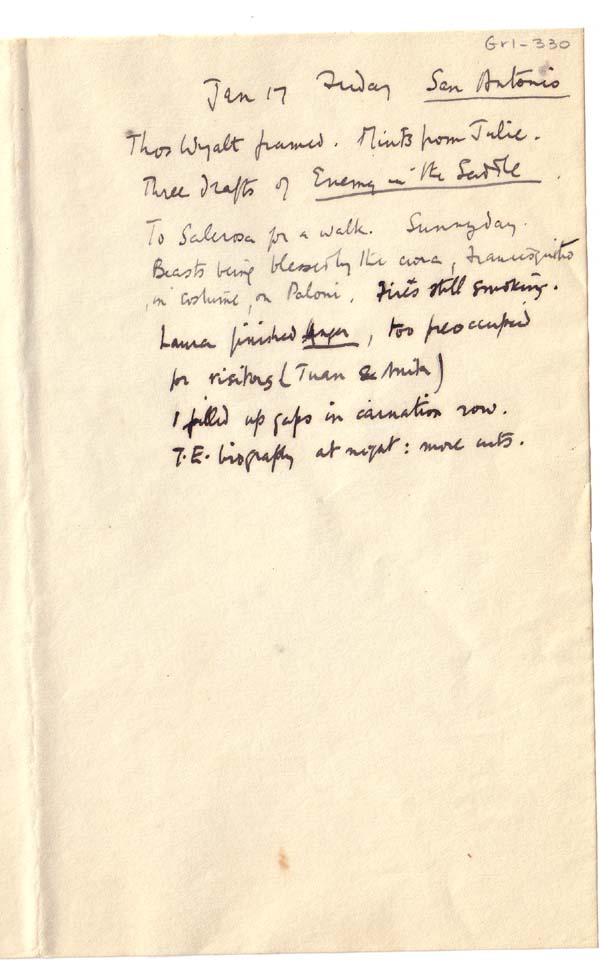 Gr1-330
Jan 17 Friday San Antonio
Thos Wyatt framed. Mints from Julie.
Three drafts of Enemy in the Saddle.
To Salerosa for a walk. Sunny day.
Beasts being blessed by the cura, Francisquito
in costume, on Paloni. Fires still smoking.
Laura finished Anger, too preoccupied
for visitors (Juan & Anita)
I filled up gaps in carnation row.
T.E. biography at night: more cuts.